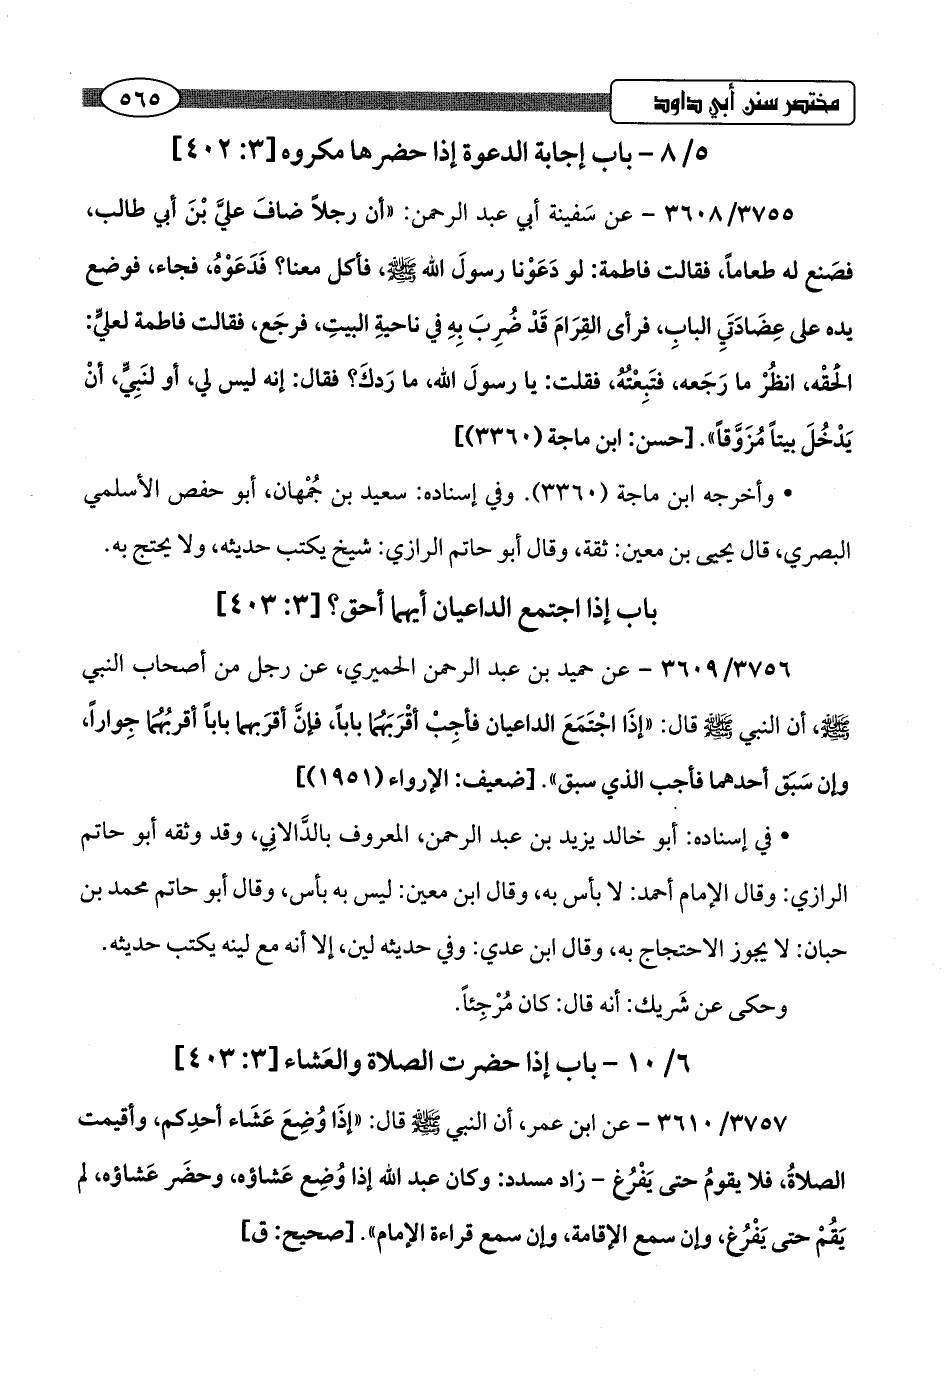 مختصر سنن أبي داود ٥٦٥
٨/٥ - باب إجابة الدعوة إذا حضرها مكروه [٣: ٤٠٢]
٣٦٠٨/٣٧٥٥ - عن سَفينة أبي عبد الرحمن: «أن رجلاً ضافَ عليَّ بْنَ أبي طالب،
فصَنع له طعاماً، فقالت فاطمة: لو دَعَوْنا رسولَ الله ﷺ، فأكل معنا؟ فَدَعَوْهُ، فجاء، فوضع
يده على عِضَادَتَيِ البابِ، فرأى القِرَامَ قَدْ ضُرِبَ بِهِ في ناحيةِ البيتِ، فرجَع، فقالت فاطمة لعليٍّ:
الحُقْه، انظُرْ ما رَجَعه، فتَبِعْتُهُ، فقلت: يا رسولَ الله، ما رَدكَ؟ فقال: إنه ليس لي، أو لنَبِيٍّ، أنْ
يَدْخُلَ بيتاً مُزَوَّقاً». [حسن: ابن ماجة (٣٣٦٠)]
• وأخرجه ابن ماجة (٣٣٦٠). وفي إسناده: سعيد بن جُمْهان، أبو حفص الأسلمي
البصري، قال يحيى بن معين: ثقة، وقال أبو حاتم الرازي: شيخ يكتب حديثه، ولا يحتج به.
باب إذا اجتمع الداعيان أيهما أحق؟ [٣: ٤٠٣]
٣٦٠٩/٣٧٥٦ - عن حميد بن عبد الرحمن الحميري، عن رجل من أصحاب النبي
ﷺ، أن النبي ﷺ قال: «إذَا اجْتَمَعَ الداعيان فأجِبْ أقْرَبَهُما باباً، فإنَّ أقرَبهما باباً أقربُهُما جِواراً،
وإن سَبَق أحدهما فأجب الذي سبق». [ضعيف: الإرواء (١٩٥١)]
• في إسناده: أبو خالد يزيد بن عبد الرحمن، المعروف بالدَّالاني، وقد وثقه أبو حاتم
الرازي: وقال الإمام أحمد: لا بأس به، وقال ابن معين: ليس به بأس، وقال أبو حاتم محمد بن
حبان: لا يجوز الاحتجاج به، وقال ابن عدي: وفي حديثه لين، إلا أنه مع لينه يكتب حديثه.
وحكى عن شَريك: أنه قال: كان مُرْجِئاً.
١٠/٦ - باب إذا حضرت الصلاة والعَشاء [٣: ٤٠٣]
٣٦١٠/٣٧٥٧ - عن ابن عمر، أن النبي ﷺ قال: «إذَا وُضِعَ عَشَاء أحدِكم، وأقيمت
الصلاةُ، فلا يقومُ حتى يَفْرُغ - زاد مسدد: وكان عبد الله إذا وُضِع عَشاؤه، وحضَر عَشاؤه، لم
يَقُمْ حتى يَفْرُغ، وإن سمع الإقامة، وإن سمع قراءة الإمام». [صحيح: ق]